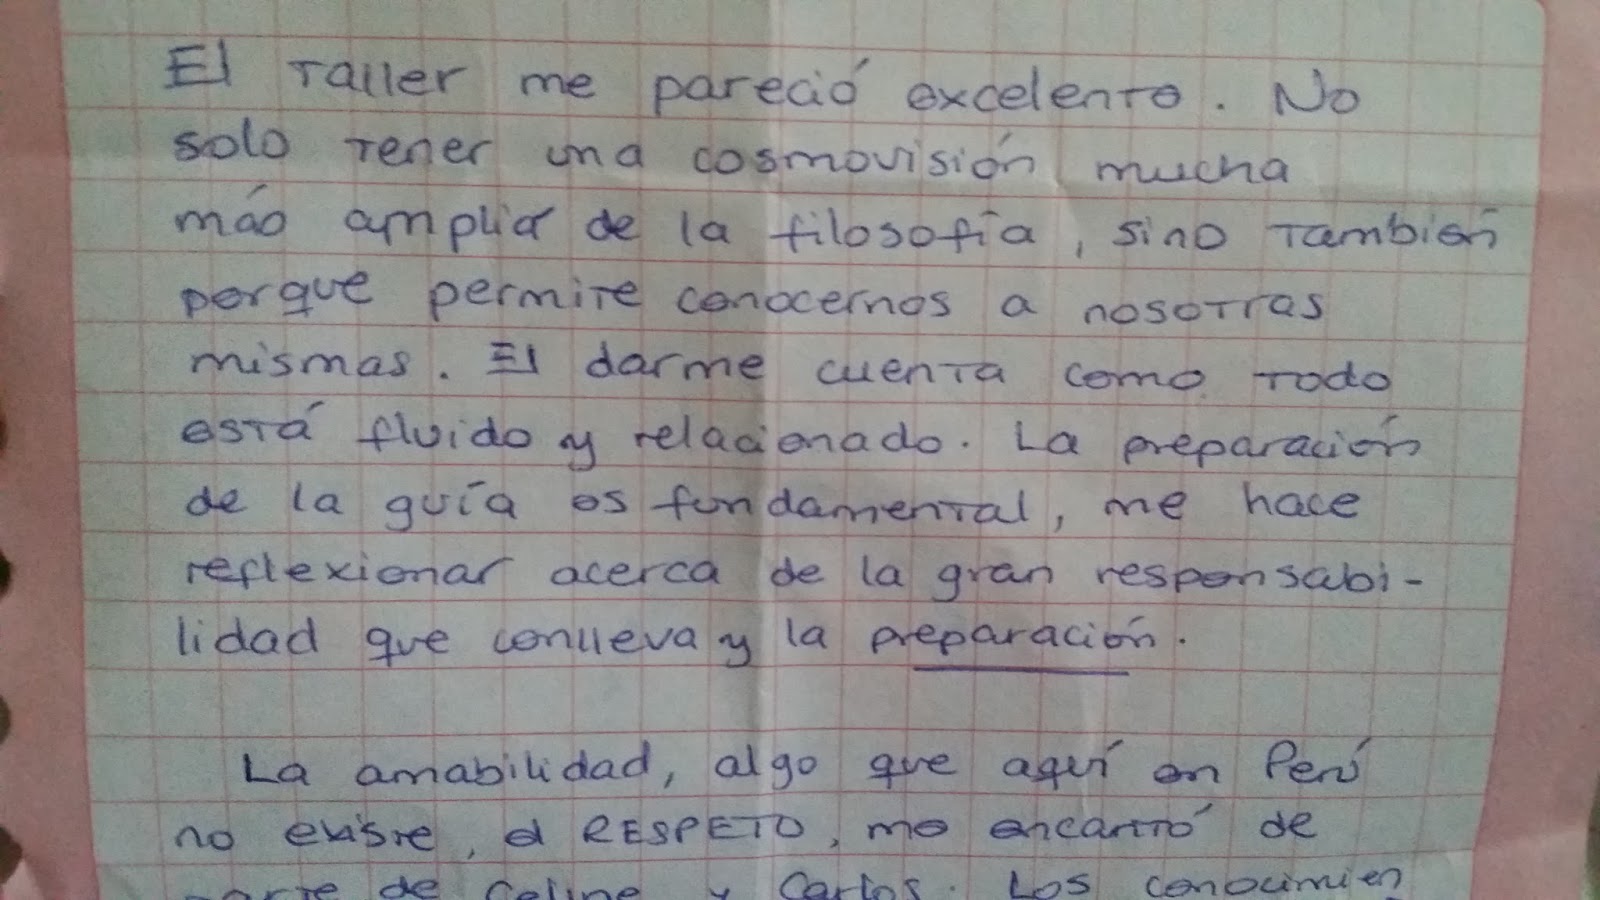 El Taller me pareció excelente. No
solo tener una cosmovisión mucha
más amplia de la filosofía, sino también
porque permite conocernos a nosotras
mismas. El darme cuenta como todo
está fluido y relacionado. La preparación
de la guía es fundamental, me hace
reflexionar acerca de la gran responsabi-
lidad que conlleva y la preparación.
La amabilidad, algo que aquí en Perú
no existe, el RESPETO, me encantó de
parte de Celine y Carlos. Los conocimien